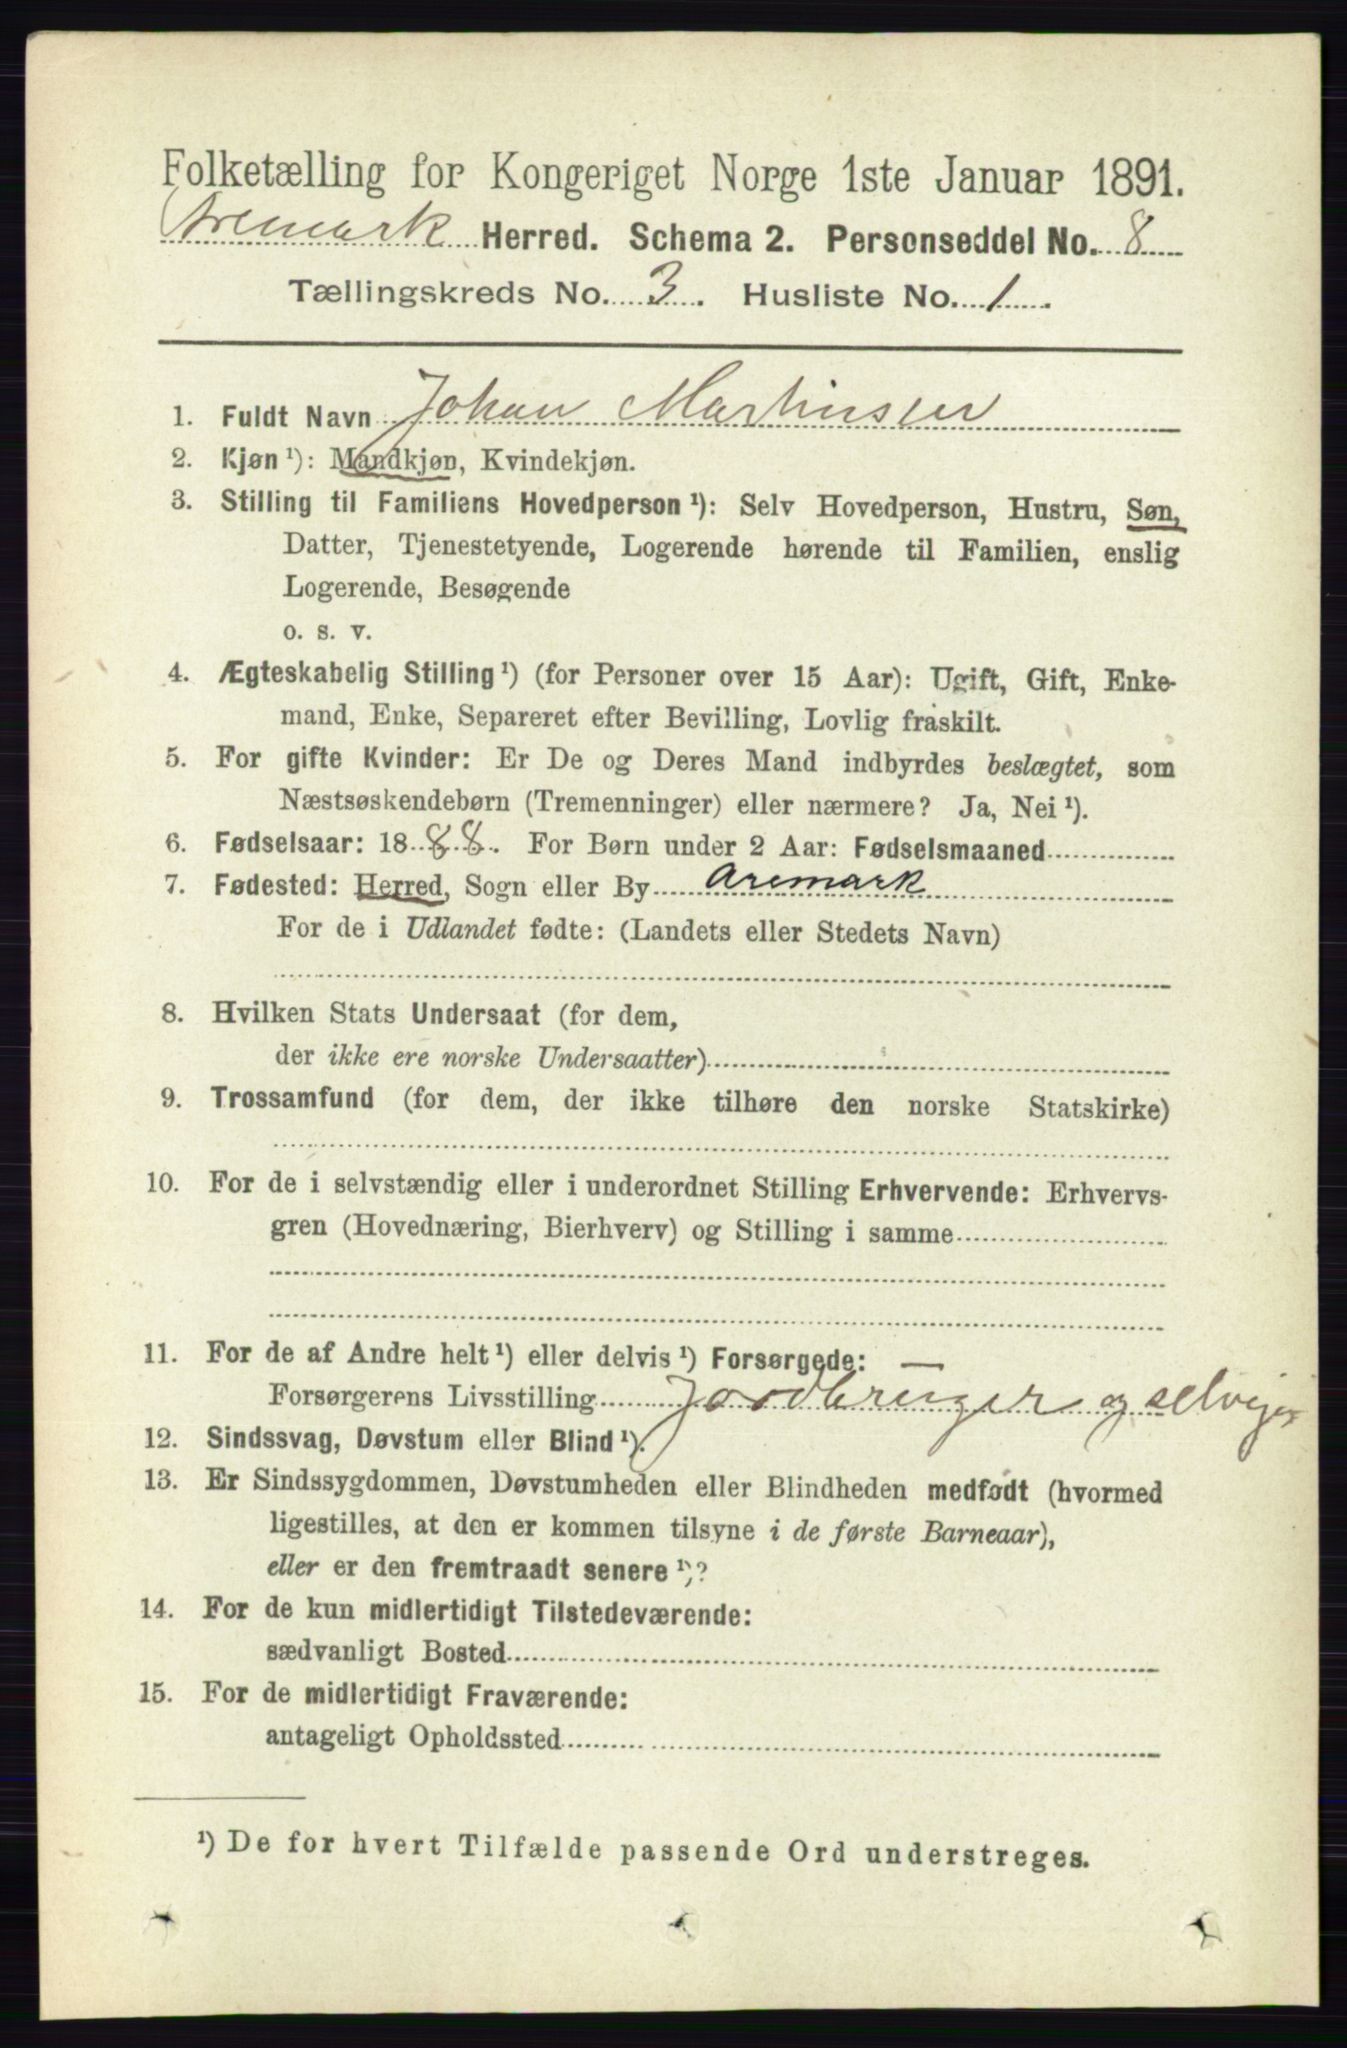 Folketælling for Kongeriget Norge 1ste Januar 1891.
Aremark Herred. Schema 2. Personseddel No. 8
Tællingskreds No. 3. Husliste No. 1.
1. Fuldt Navn Johan Martinsen
2. Kjøn ¹): Mandkjøn, Kvindekjøn.
3. Stilling til Familiens Hovedperson ¹): Selv Hovedperson, Hustru, Søn,
Datter, Tjenestetyende, Logerende hørende til Familien, enslig
Logerende, Besøgende
o. s. v.
4. Ægteskabelig Stilling ¹) (for Personer over 15 Aar): Ugift, Gift, Enke-
mand, Enke, Separeret efter Bevilling, Lovlig fraskilt.
5. For gifte Kvinder: Er De og Deres Mand indbyrdes beslægtet, som
Næstsøskendebørn (Tremenninger) eller nærmere? Ja, Nei ¹).
6. Fødselsaar: 1888. For Børn under 2 Aar: Fødselsmaaned
7. Fødested: Herred, Sogn eller By Aremark
For de i Udlandet fødte: (Landets eller Stedets Navn)
8. Hvilken Stats Undersaat (for dem,
der ikke ere norske Undersaatter)
9. Trossamfund (for dem, der ikke tilhøre den norske Statskirke)
10. For de i selvstændig eller i underordnet Stilling Erhvervende: Erhvervs-
gren (Hovednæring, Bierhverv) og Stilling i samme
11. For de af Andre helt ¹) eller delvis ¹) Forsørgede: —
Forsørgerens Livsstilling Jordbruger og selveier
12. Sindssvag, Døvstum eller Blind ¹).
13. Er Sindssygdommen, Døvstumheden eller Blindheden medfødt (hvormed
ligestilles, at den er kommen tilsyne i de første Barneaar),
eller er den fremtraadt senere ¹)?
14. For de kun midlertidigt Tilstedeværende:
sædvanligt Bosted
15. For de midlertidigt Fraværende:
antageligt Opholdssted
¹) De for hvert Tilfælde passende Ord understreges.